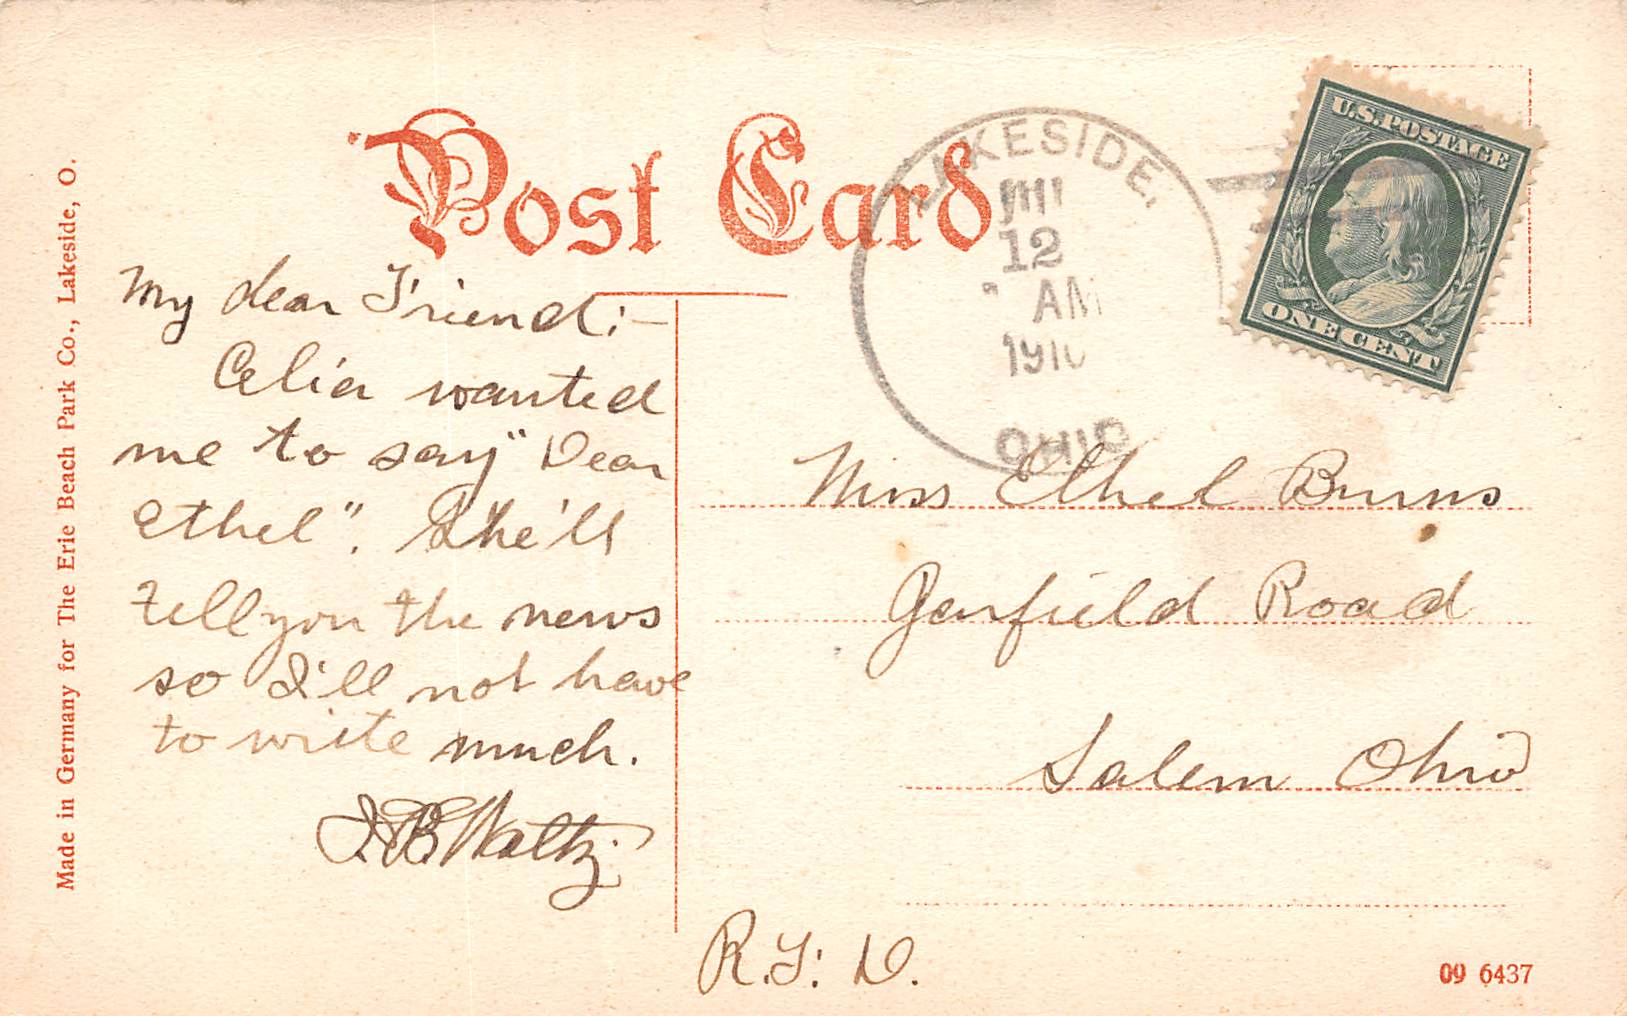 Post Card
Made in Germany for The Erie Beach Park Co., Lakeside, O.
LAKESIDE,
12
AM
1910
OHIO
U.S. POSTAGE
ONE CENT
My dear Friend:—
Celia wanted
me to say "Dear
Ethel". She'll
tell you the news
so I'll not have
to write much.
Waltz
Miss Ethel Burns
Garfield Road
Salem Ohio
R.F.D.
09 6437